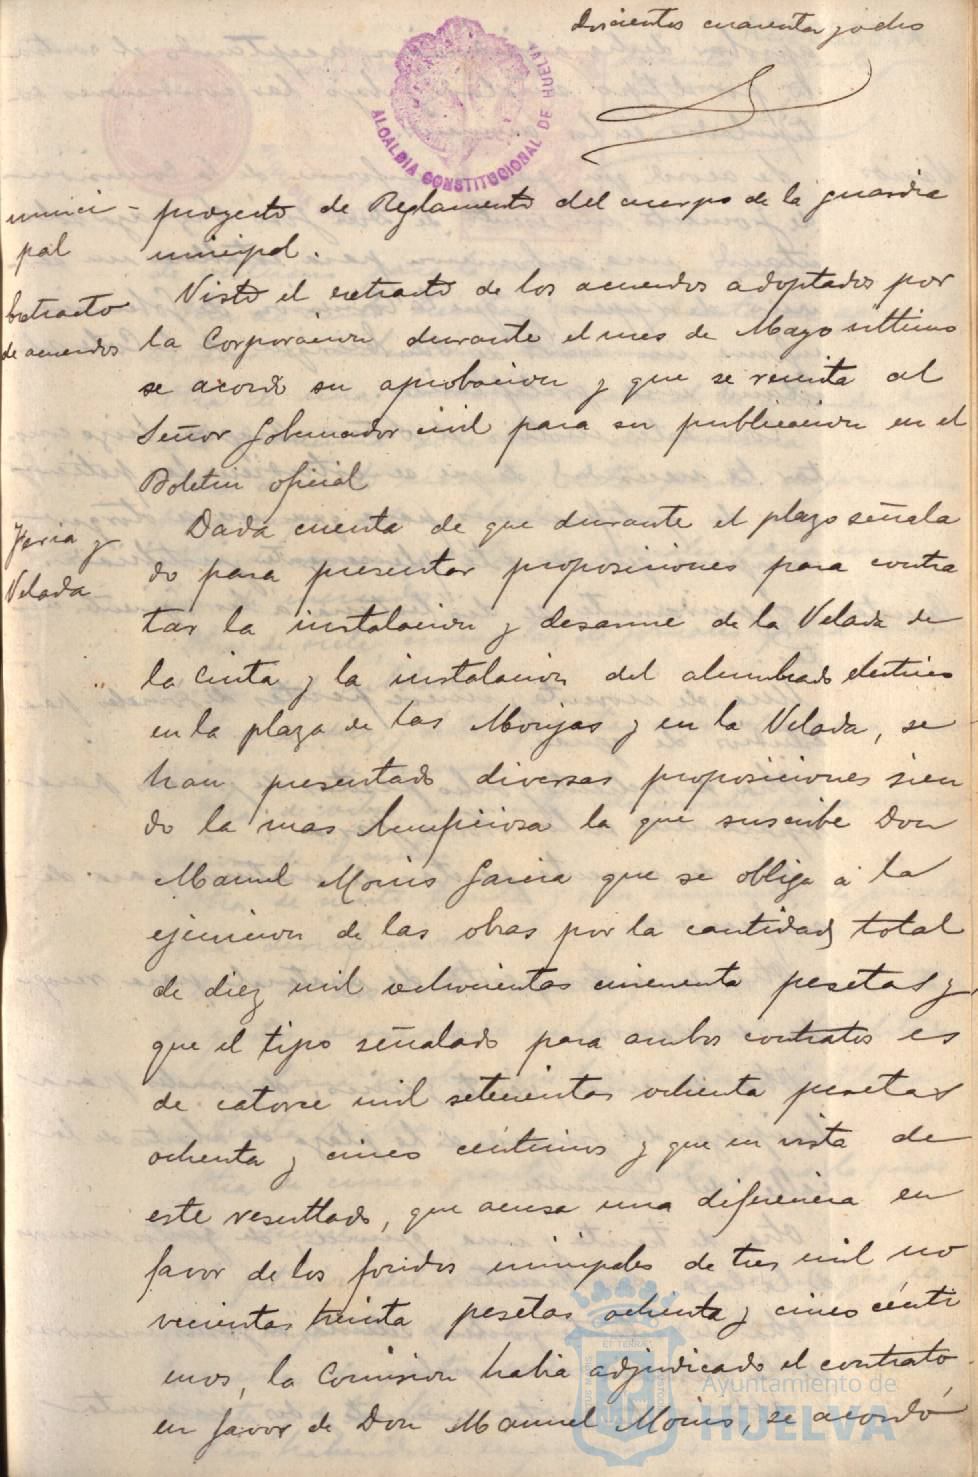 doscientos cuarenta y ocho
ALCALDIA CONSTITUCIONAL DE HUELVA
munici-
pal
proyecto de Reglamento del cuerpo de la guardia
municipal.
Extracto
de acuerdos
Visto el extracto de los acuerdos adoptados por
la Corporacion durante el mes de Mayo ultimo
se acordó su aprobacion y que se remita al
Señor Gobernador civil para su publicacion en el
Boletin oficial
Feria y
Velada
Dada cuenta de que durante el plazo señala
do para presentar proposiciones para contra
tar la instalacion y desarme de la Velada de
la Cinta y la instalacion del alumbrado electrico
en la plaza de las Monjas y en la Velada, se
han presentado diversas proposiciones sien
do la mas beneficiosa la que suscribe Don
Manuel Moris Garcia que se obliga á la
ejecucion de las obras por la cantidad total
de diez mil ochocientas cincuenta pesetas y
que el tipo señalado para ambos contratos es
de catorce mil setecientas ochenta pesetas
ochenta y cinco céntimos y que en vista de
este resultado, que acusa una diferencia en
favor de los fondos municipales de tres mil no
vecientas treinta pesetas ochenta y cinco cénti
mos, la Comision habia adjudicado el contrato
en favor de Don Manuel Moris, se acordó
Ayuntamiento de
HUELVA